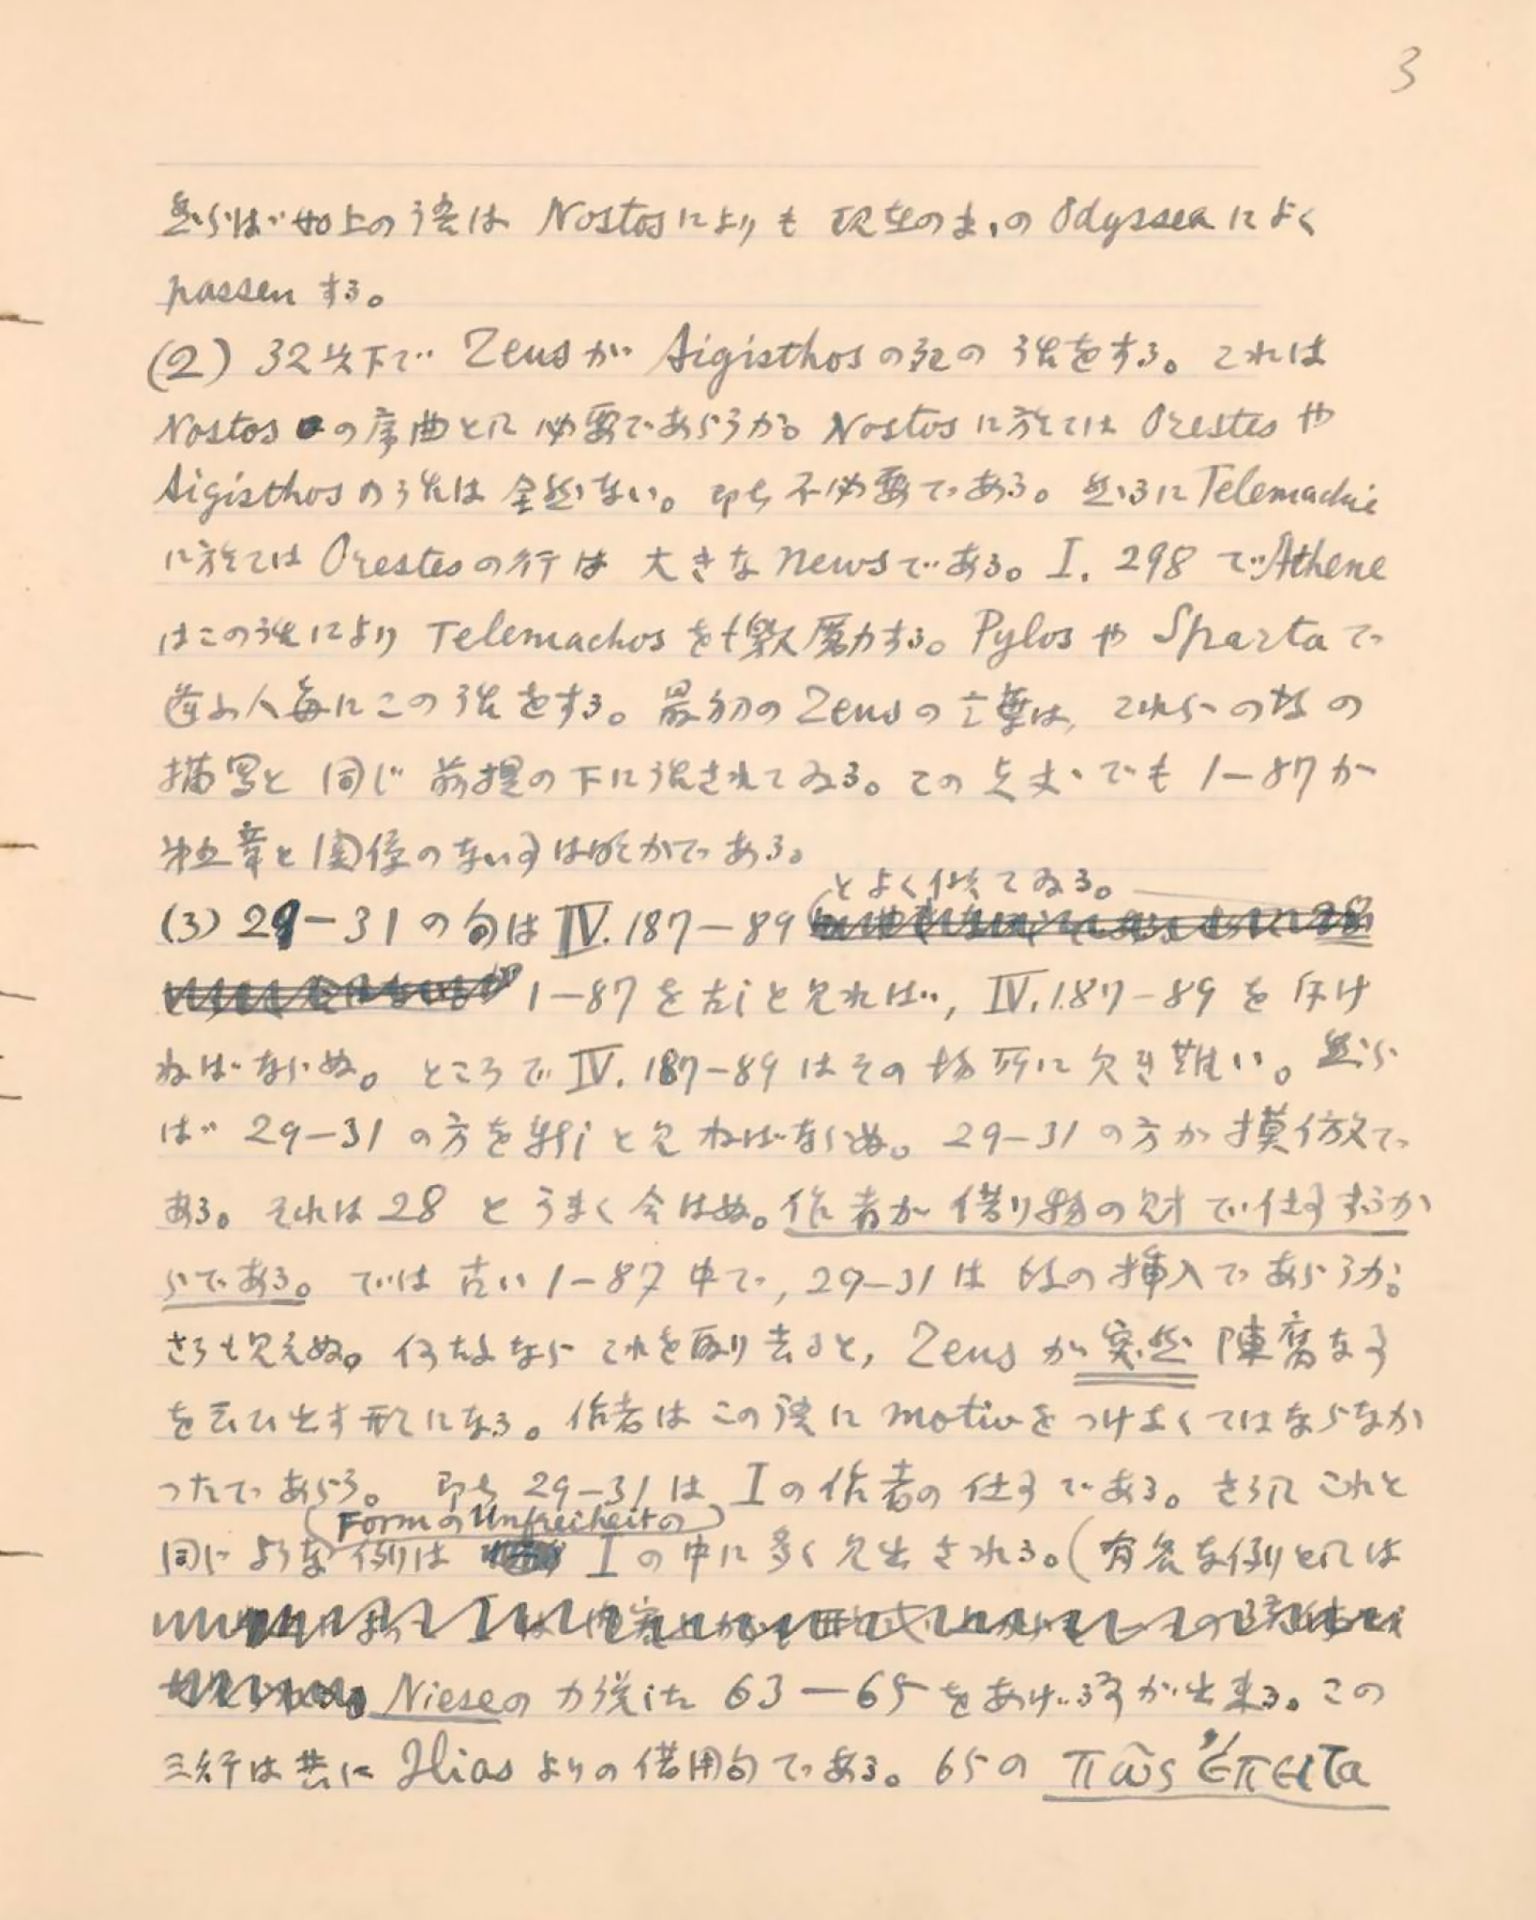 3
然らば如上の言葉は Nostosによりも 現在のまゝの Odysseaによく
passenする。
(2) 32以下で Zeusが Aigisthosの死の話をする。これは
Nostosの序曲として必要であらうか。Nostosに於ては Orestesや
Aigisthosの話は全然ない。即ち不必要である。然るにTelemachie
に於ては Orestesの行は大きなnewsである。I. 298 でAthene
はこの話により Telemachosを激励する。Pylosや Spartaで
逢ふ人毎にこの話をする。最初のZeusの言葉は、これらの故の
描写と同じ前提の下に話されてゐる。この点丈でも 1—87が
第五章と関係のない事は明かである。
とよく似てゐる。
(3) 29—31の句は IV. 187—89
1—87を古しと見れば、IV. 187—89を斥け
ねばならぬ。ところでIV. 187—89はその場所に欠き難い。然ら
ば 29—31の方を新しと見ねばならぬ。29—31の方が模倣で
ある。それは28とうまく合はぬ。作者が借り物の財で仕事するか
らである。では古い1—87中で、29—31は後の挿入であらうか。
さうも見えぬ。何故なら これを取り去ると、Zeusが突然陳腐な事
を云ひ出す形になる。作者はこの語にmotivをつけなくてはならなか
ったであらう。即ち 29—31は Iの作者の仕事である。さうしてこれと
FormのUnfreiheitの
同じような例は Iの中に多く見出される。(有名な例としては
Nieseの力説した 63—65をあげる事が出来る。この
三行は共に Iliasよりの借用句である。65の πῶς ἔπειτα